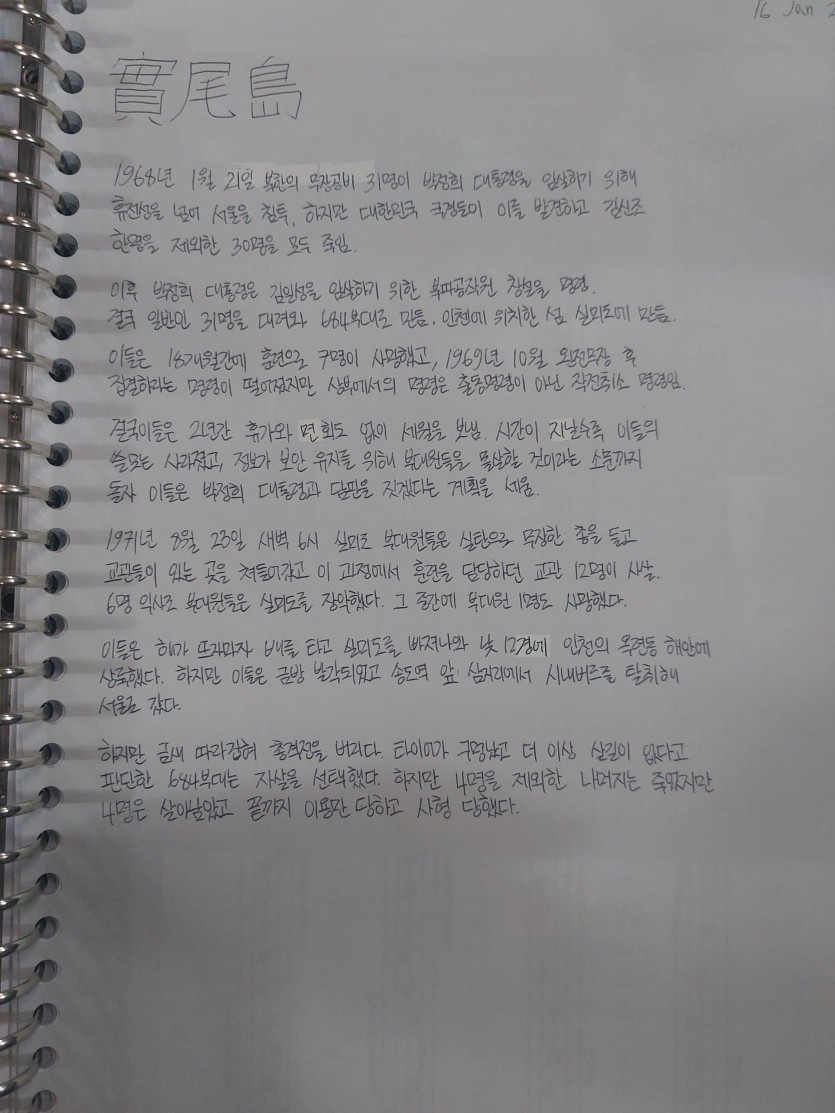 16 Jan 2
實尾島
1968년 1월 21일 북한의 무장공비 31명이 박정희 대통령을 암살하기 위해
휴전선을 넘어 서울을 침투, 하지만 대한민국 국경들이 이를 발견하고 김신조
한명을 제외한 30명을 모두 죽임.
이후 박정희 대통령은 김일성을 암살하기 위한 북파공작원 창설을 명령.
결국 일반인 31명을 데려와 684부대로 만듬. 인천에 위치한 섬 실미도에 만듬.
이들은 18개월간에 훈련으로 7명이 사망했고, 1969년 10월 완전무장 후
집결하라는 명령이 떨어졌지만 상부에서의 명령은 출동명령이 아닌 작전취소 명령임.
결국이들은 2년간 휴가와 면회도 없이 세월을 보냄. 시간이 지날수록 이들의
쓸모는 사라졌고, 정보가 보안 유지를 위해 부대원들을 몰살할 것이라는 소문까지
돌자 이들은 박정희 대통령과 담판을 짓겠다는 계획을 세움.
1971년 8월 23일 새벽 6시 실미도 부대원들은 실탄으로 무장한 총을 들고
교관들이 있는 곳을 쳐들어갔고 이 과정에서 훈련을 담당하던 교관 12명이 사살.
6명 익사로 부대원들은 실미도를 장악했다. 그 중간에 부대원 1명도 사망했다.
이들은 해가 뜨자마자 배를 타고 실미도를 빠져나와 낮 12경에 인천의 옥련동 해안에
상륙했다. 하지만 이들은 금방 발각되었고 송도역 앞 삼거리에서 시내버스를 탈취해
서울로 갔다.
하지만 금새 따라잡혀 총격전을 버리다. 타이어가 구멍났고 더 이상 살길이 없다고
판단한 684부대는 자살을 선택했다. 하지만 4명을 제외한 나머지는 죽었지만
4명은 살아남았고 끝까지 이용만 당하고 사형 당했다.